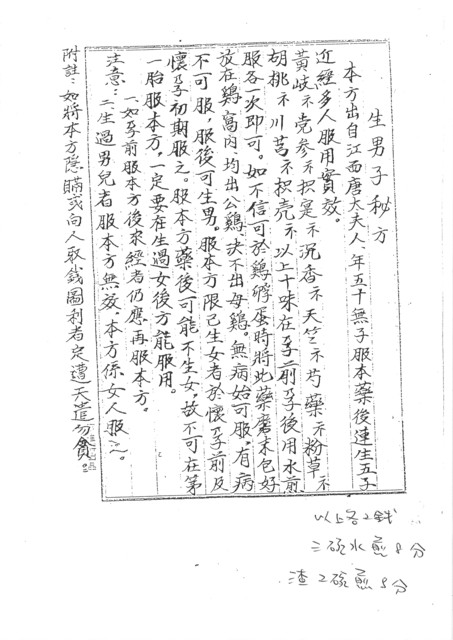 生男子秘方
本方出自江西唐大夫人年五十無子服本藥後連生五子
近經多人服用實效。
黃岐不党参不枳寔不沉香不天竺不芍藥不粉草不
胡桃不川芎不枳壳不以上十味在孕前孕後用水煎
服各一次即可。如不信可於鷄孵蛋時將此藥磨末包好
放在鷄窩内均出公鷄決不出母鷄。無病始可服，有病
不可服，服後可生男。服本方限已生女者於懷孕前及
懷孕初期服之。服本方藥後可能不生女，故不可在第
一胎服本方，一定要在生過女後方能服用。
注意：一、如孕前服本方後來經者仍應再服本方。
二、生過男兒者服本方無效。本方係女人服之。
附註：如將本方隱瞞或向人取錢圖利者定遭天遣勿貪。
以上各2錢
三碗水煎8分
渣2碗煎5分